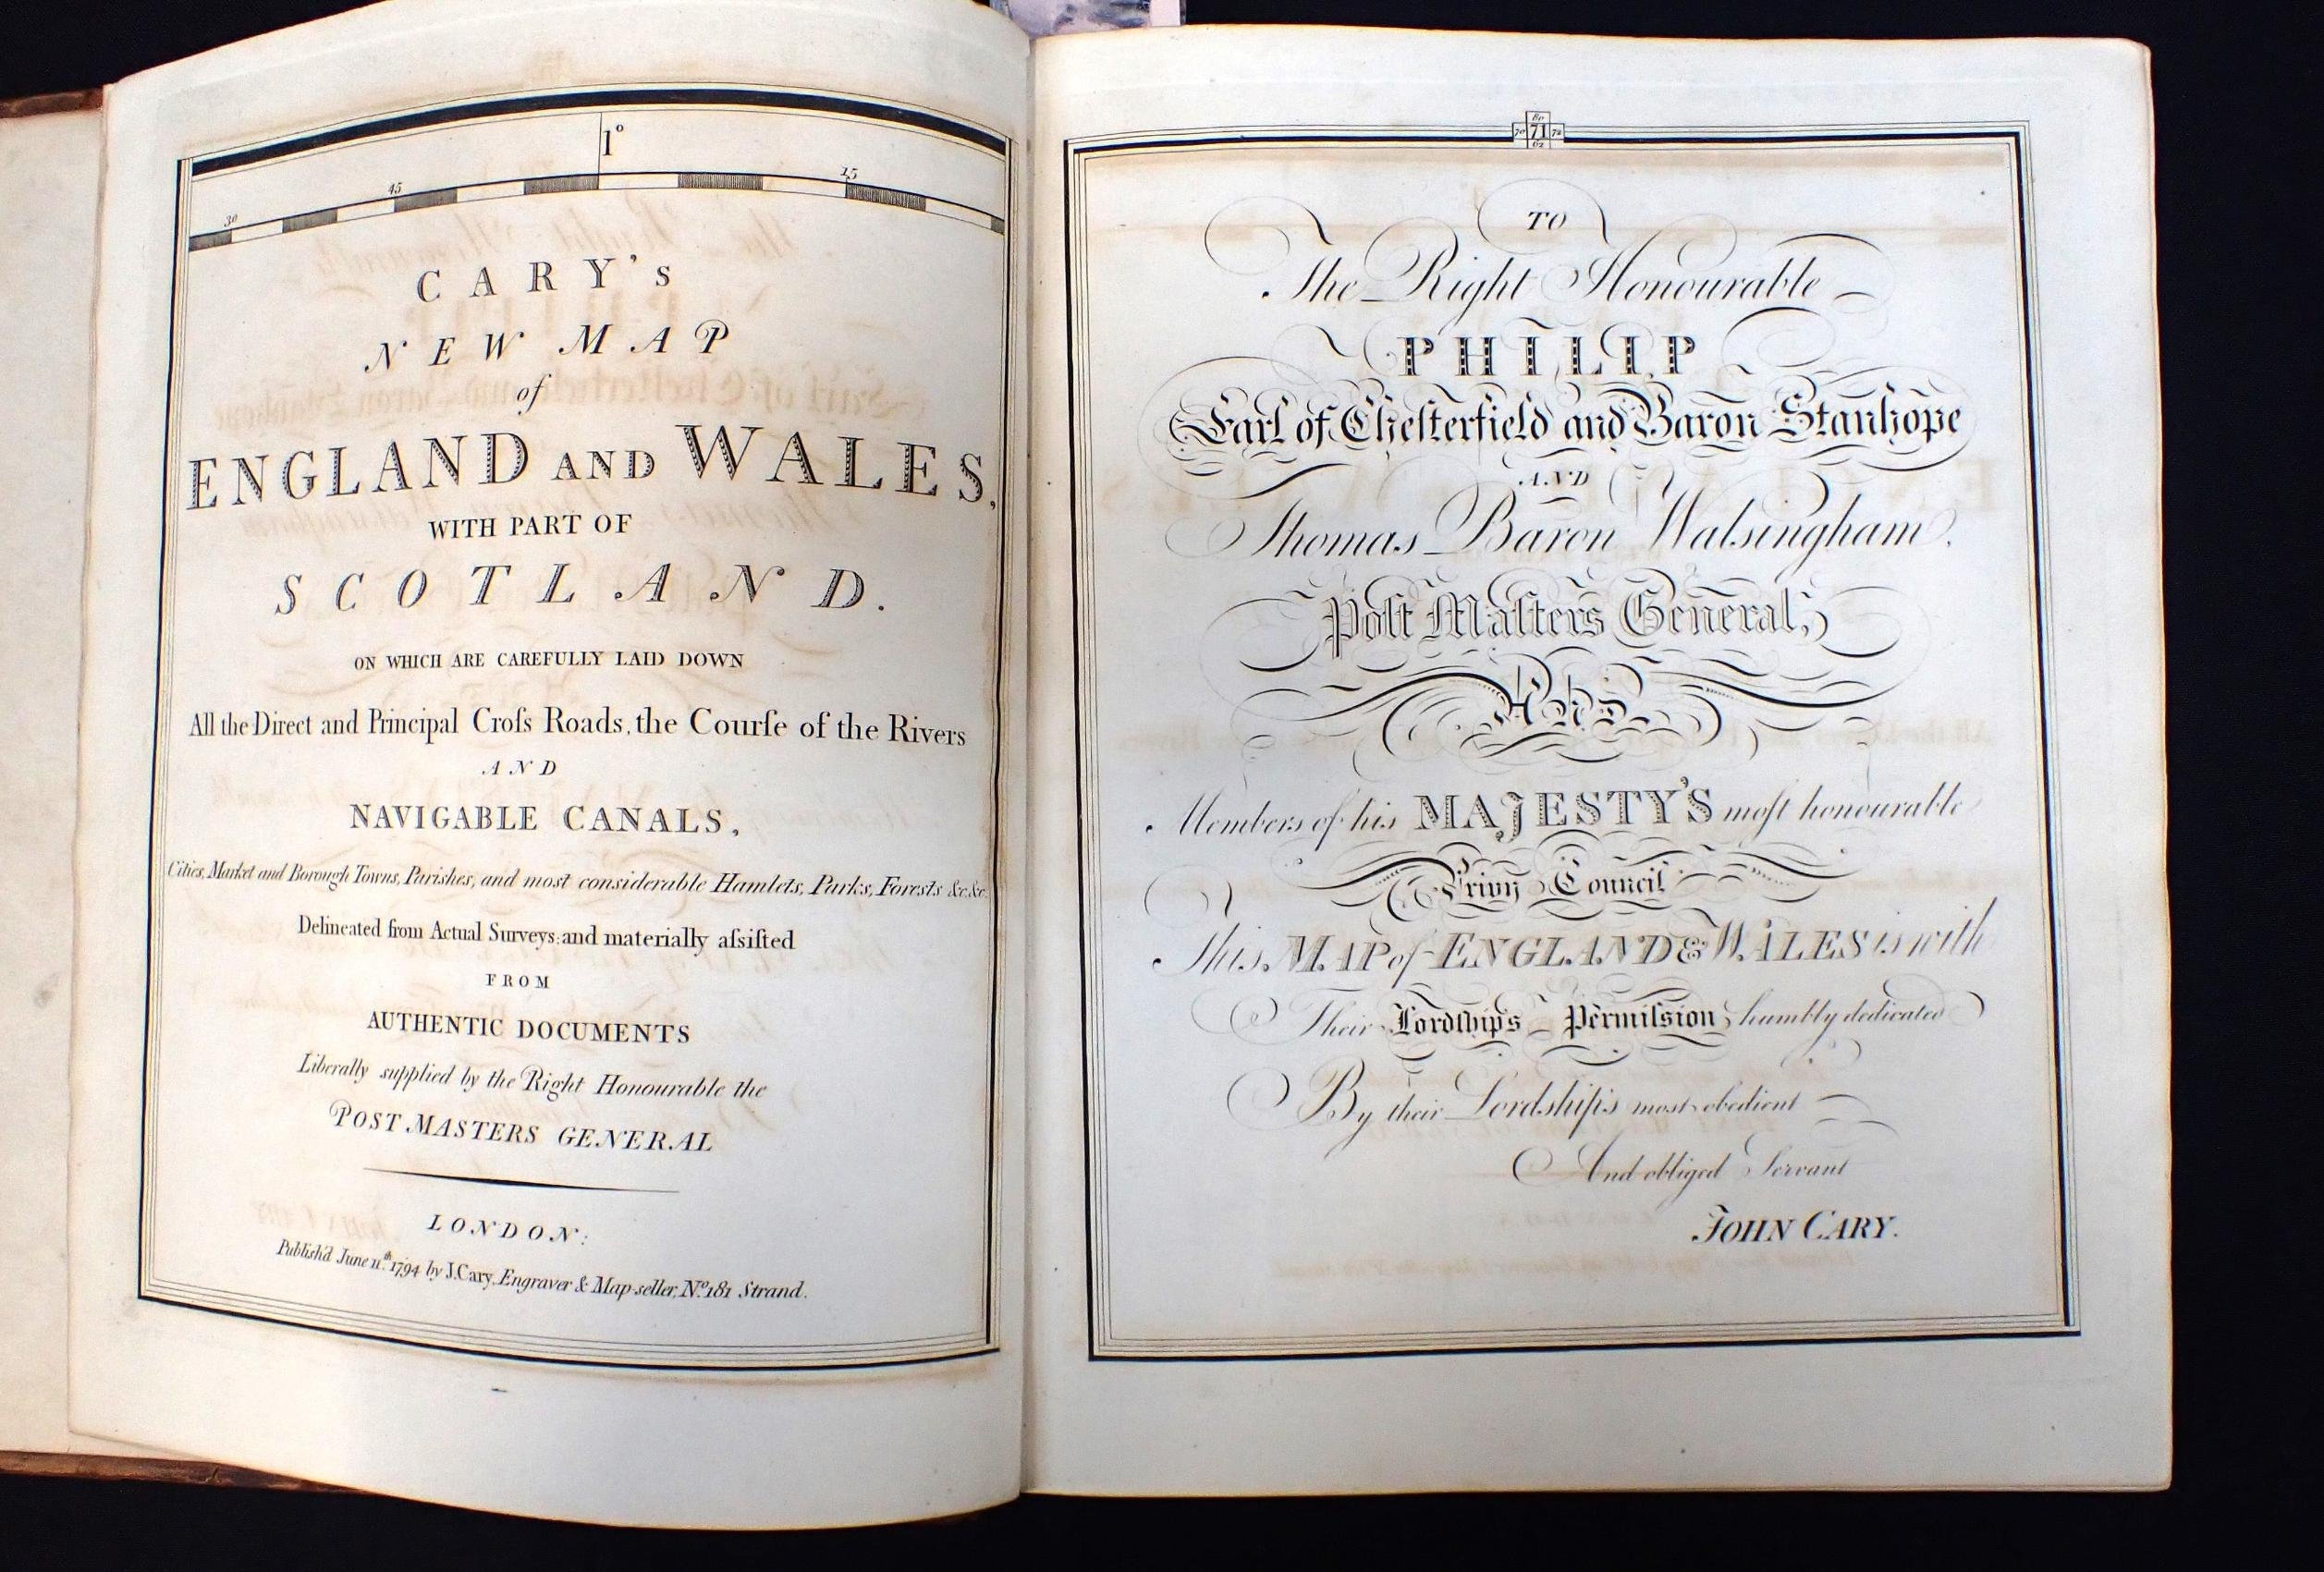 1°
30 45 15
CARY's
NEW MAP
of
ENGLAND AND WALES,
WITH PART OF
SCOTLAND.
ON WHICH ARE CAREFULLY LAID DOWN
All the Direct and Principal Croſs Roads, the Courſe of the Rivers
AND
NAVIGABLE CANALS,
Cities, Market and Borough Towns, Parishes, and most considerable Hamlets, Parks, Forests &c. &c.
Delineated from Actual Surveys: and materially aſsiſted
FROM
AUTHENTIC DOCUMENTS
Liberally supplied by the Right Honourable the
POST MASTERS GENERAL
LONDON:
Publish'd June 11.th 1794 by J. Cary, Engraver & Map-seller, No. 181 Strand.
80
70 71 72
62
TO
The Right Honourable
PHILIP
Earl of Cheſterfield and Baron Stanhope
AND
Thomas Baron Walsingham,
Poſt Maſters General,
AND
Members of his MAJESTY'S moſt honourable
Privy Council
This MAP of ENGLAND & WALES is with
Their Lordſhip's Permiſsion humbly dedicated
By their Lordship's most obedient
And obliged Servant
JOHN CARY.